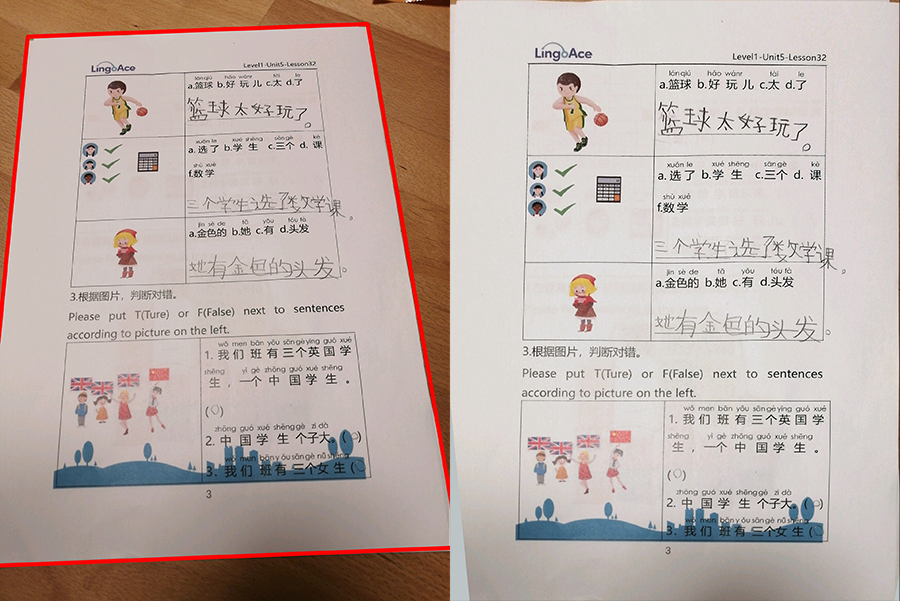 LingoAce
Level1-Unit5-Lesson32
lánqiú hǎo wánr tài le
a.篮球 b.好 玩 儿 c.太 d.了
篮球太好玩了。
xuǎn le xué shēng sān gè kè
a. 选了 b.学 生 c.三个 d. 课
shù xué
f.数学
三个学生选了数学课。
jīn sè de tā yǒu tóu fà
a.金色的 b.她 c.有 d.头发
她有金色的头发。
3.根据图片，判断对错。
Please put T(Ture) or F(False) next to sentences
according to picture on the left.
wǒ men bān yǒu sān gè yīng guó xué
1. 我 们 班 有 三个英国学
shēng yí gè zhōng guó xué shēng
生，一个 中 国 学 生 。
( )
zhōng guó xué shēng gè zi dà
2. 中 国 学 生 个子大。( )
wǒ men bān yǒu sān gè nǚ shēng
3. 我 们 班 有 三个女 生 (
3
LingoAce
Level1-Unit5-Lesson32
lánqiú hǎo wánr tài le
a.篮球 b.好 玩 儿 c.太 d.了
篮球太好玩了。
xuǎn le xué shēng sān gè kè
a. 选了 b.学 生 c.三个 d. 课
shù xué
f.数学
三个学生选了数学课。
jīn sè de tā yǒu tóu fà
a.金色的 b.她 c.有 d.头发
她有金色的头发。
3.根据图片，判断对错。
Please put T(Ture) or F(False) next to sentences
according to picture on the left.
wǒ men bān yǒu sān gè yīng guó xué
1. 我 们 班 有 三个英国学
shēng yí gè zhōng guó xué shēng
生，一个 中 国 学 生 。
( )
zhōng guó xué shēng gè zi dà
2. 中 国 学 生 个子大。( )
wǒ men bān yǒu sān gè nǚ shēng
3. 我 们 班 有 三个女 生 (
3